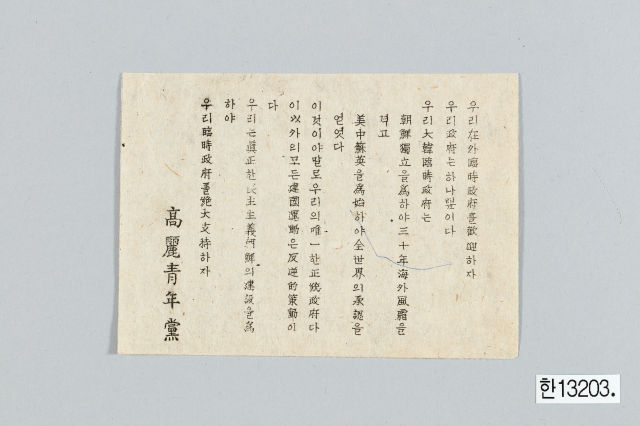 우리在外臨時政府를歡迎하자
우리政府는하나뿐이다
우리大韓臨時政府는
朝鮮獨立을爲하야三十年海外風霜을
격고
美中蘇英을爲始하야全世界의承認을
얻엇다
이것이야말로우리의唯一한正統政府다
이以外의모든建國運動은反逆的策動이
다
우리는眞正한民主主義朝鮮의建設을爲
하야
우리臨時政府를絶大支持하자
高麗靑年黨
한13203.